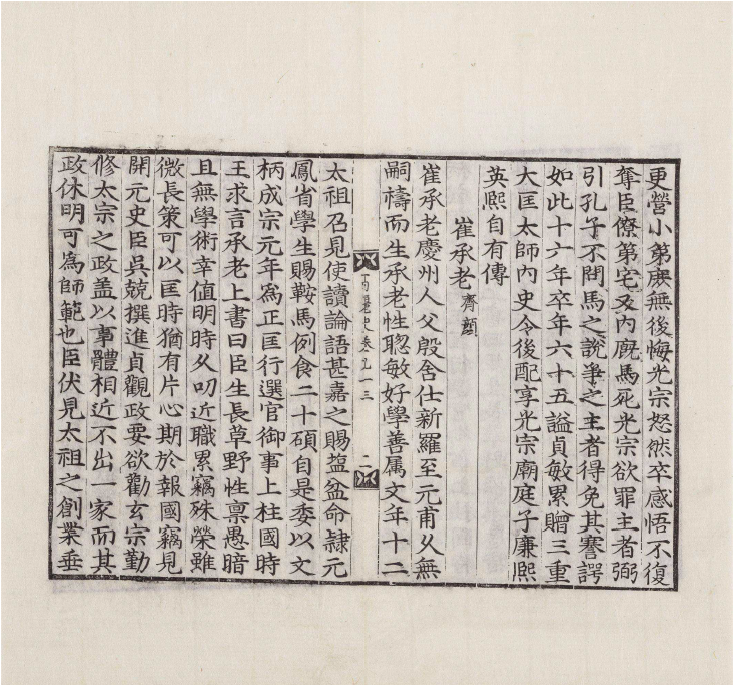 更營小第庶無後悔光宗怒然卒感悟不復
奪臣僚第宅又內廐馬死光宗欲罪主者弼
引孔子不問馬之說爭之主者得免其謇諤
如此十六年卒年六十五謚貞敏累贈三重
大匡太師內史令後配享光宗廟庭子廉熙
英熙自有傳
崔承老 齊顔
崔承老慶州人父殷舍仕新羅至元甫久無
嗣禱而生承老性聦敏好學善属文年十二
太祖召見使讀論語甚嘉之賜塩盆命隷元
鳳省學生賜鞍馬例食二十碩自是委以文
柄成宗元年爲正匡行選官御事上柱國時
王求言承老上書曰臣生長草野性禀愚暗
且無學術幸値明時久叨近職累竊殊榮雖
微長策可以匡時猶有片心期於報國竊見
開元史臣吳兢撰進貞觀政要欲勸玄宗勤
修太宗之政盖以事體相近不出一家而其
政休明可爲師範也臣伏見太祖之創業垂